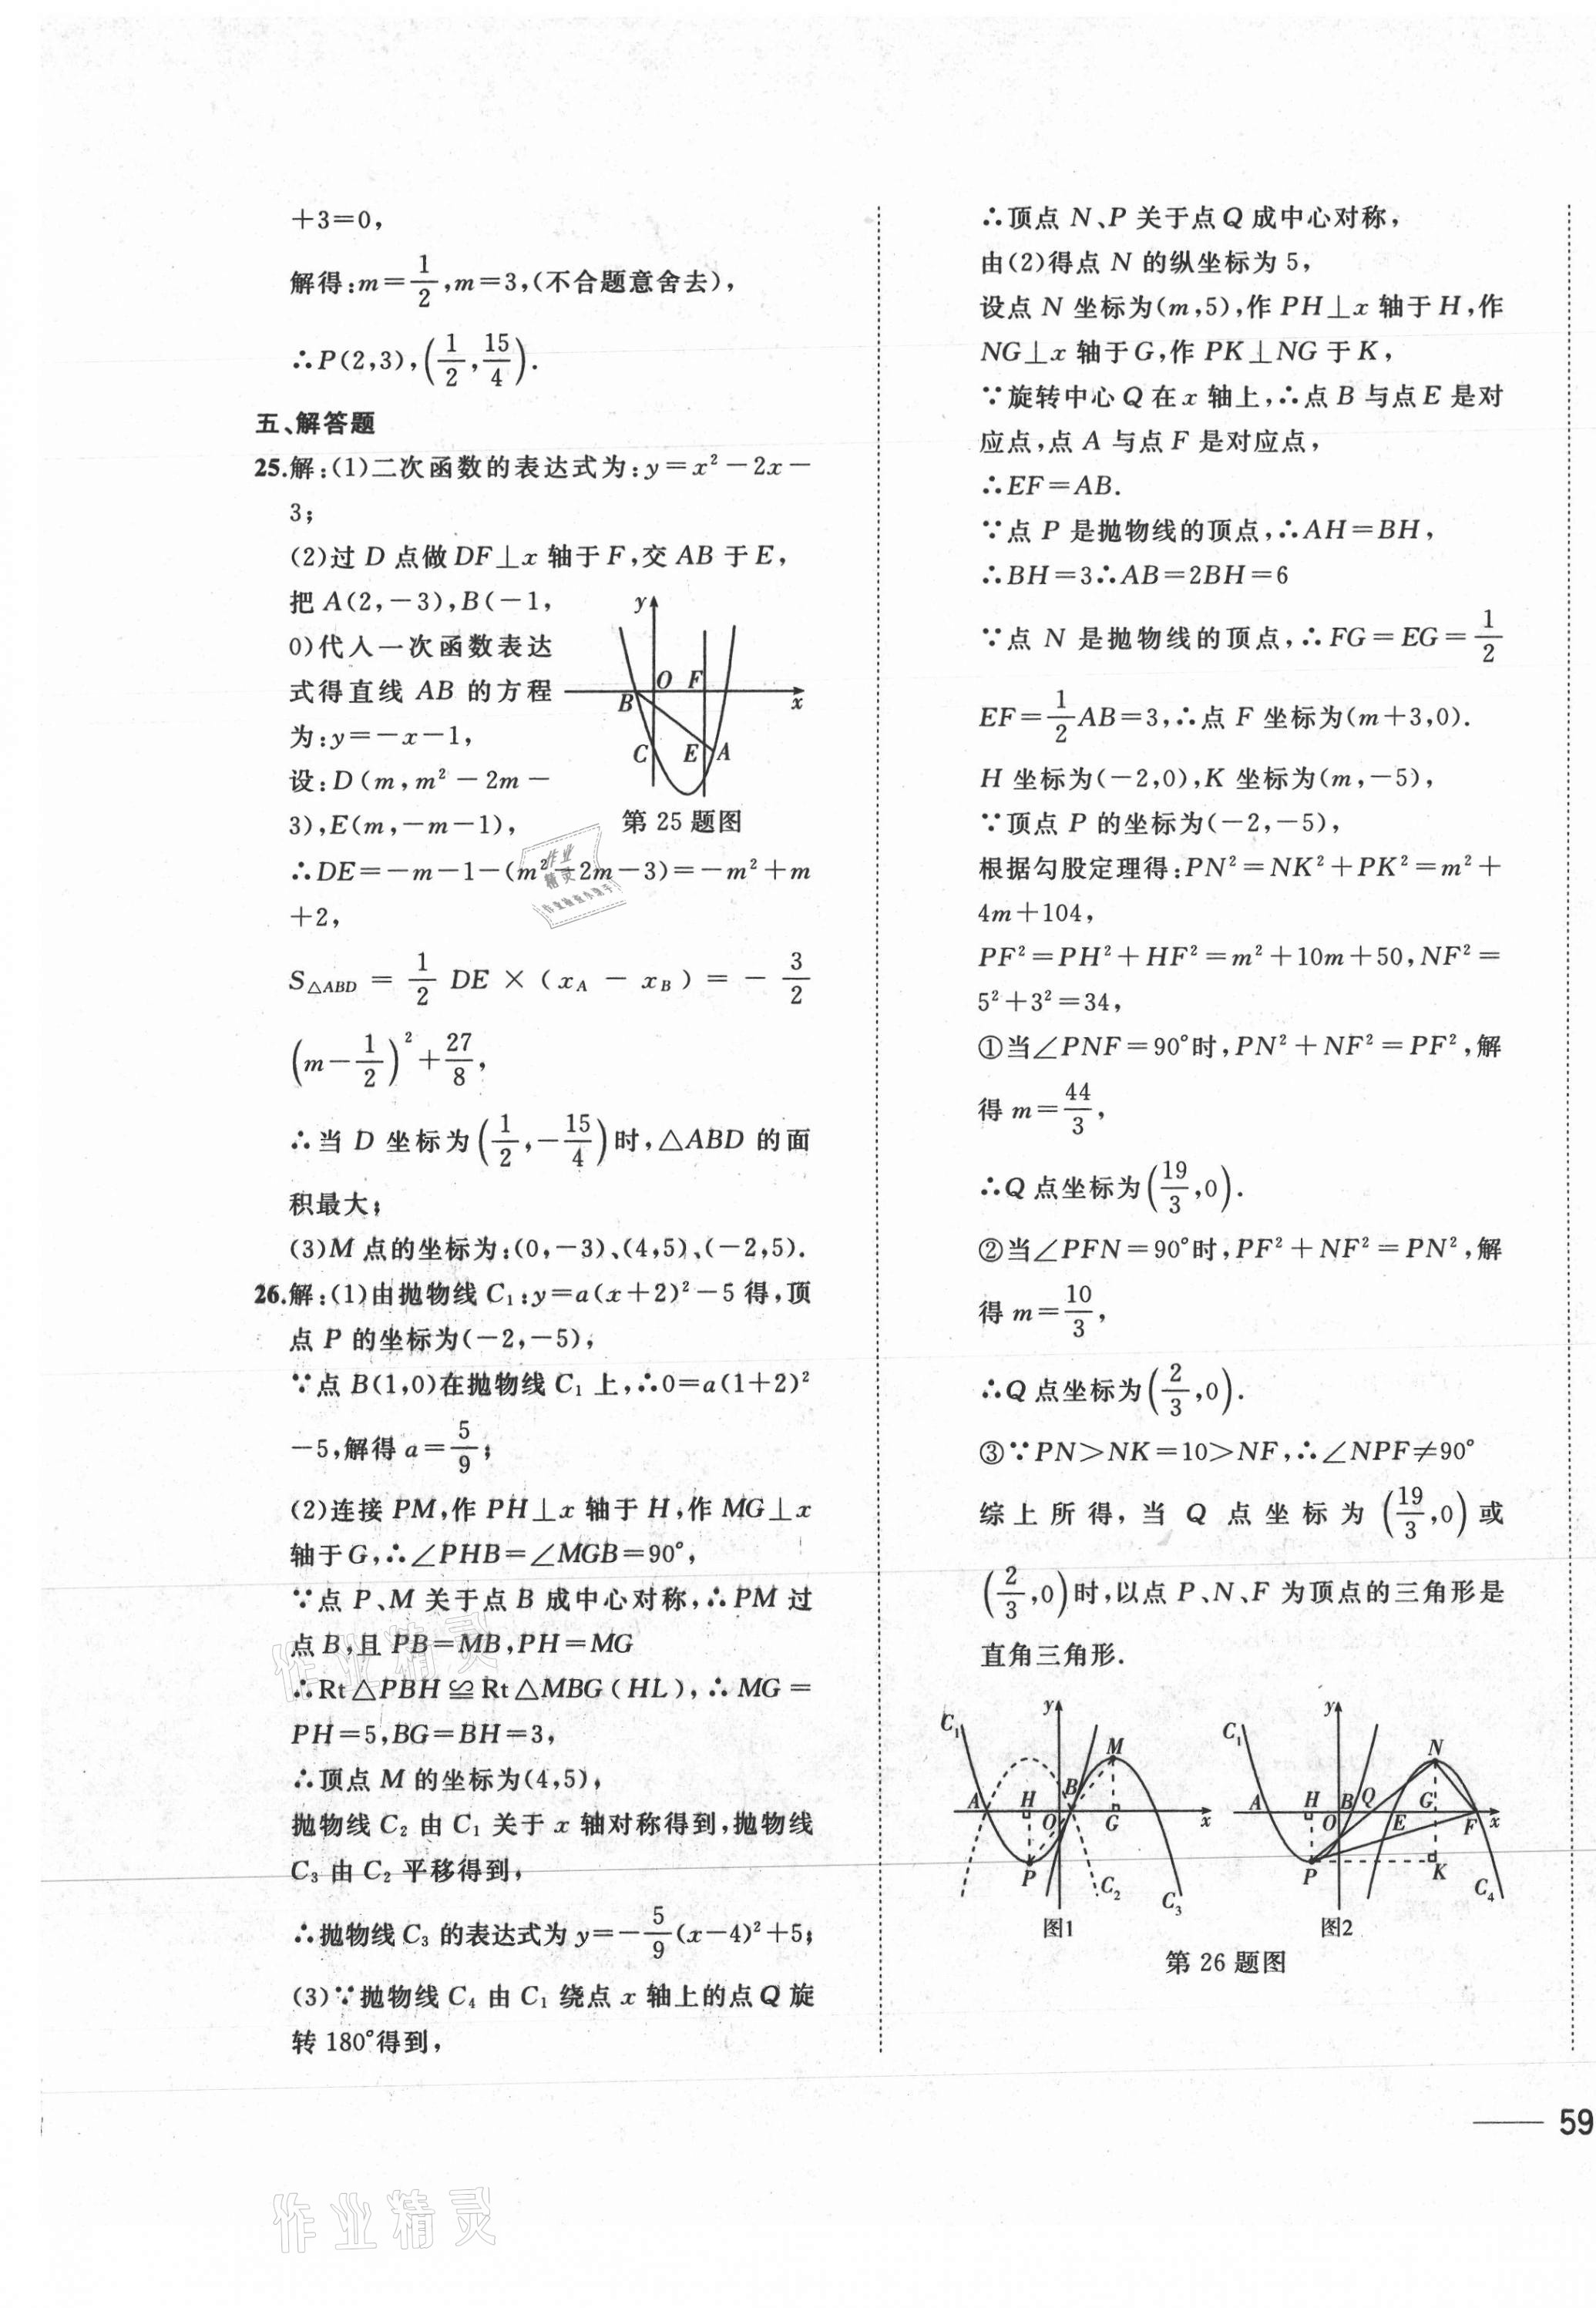 +3=0,
解得:m=1/2,m=3,(不合题意舍去),
∴P(2,3),(1/2,15/4).
五、解答题
25.解:(1)二次函数的表达式为:y=x²-2x-
3;
(2)过 D 点做 DF⊥x 轴于 F,交 AB 于 E,
把 A(2,-3),B(-1,
0)代入一次函数表达
式得直线 AB 的方程
为:y=-x-1,
设:D(m,m²-2m-
3),E(m,-m-1),
y
O
F
B
x
C
E
A
第 25 题图
∴DE=-m-1-(m²-2m-3)=-m²+m
+2,
S△ABD=1/2 DE×(xA-xB)=-3/2
(m-1/2)²+27/8,
∴当 D 坐标为(1/2,-15/4)时,△ABD 的面
积最大;
(3)M 点的坐标为:(0,-3)、(4,5)、(-2,5).
26.解:(1)由抛物线 C₁:y=a(x+2)²-5 得,顶
点 P 的坐标为(-2,-5),
∵点 B(1,0)在抛物线 C₁ 上,∴0=a(1+2)²
-5,解得 a=5/9;
(2)连接 PM,作 PH⊥x 轴于 H,作 MG⊥x
轴于 G,∴∠PHB=∠MGB=90°,
∵点 P、M 关于点 B 成中心对称,∴PM 过
点 B,且 PB=MB,PH=MG
∴Rt△PBH≌Rt△MBG(HL),∴MG=
PH=5,BG=BH=3,
∴顶点 M 的坐标为(4,5),
抛物线 C₂ 由 C₁ 关于 x 轴对称得到,抛物线
C₃ 由 C₂ 平移得到,
∴抛物线 C₃ 的表达式为 y=-5/9(x-4)²+5;
(3)∵抛物线 C₄ 由 C₁ 绕点 x 轴上的点 Q 旋
转 180°得到,
∴顶点 N、P 关于点 Q 成中心对称,
由(2)得点 N 的纵坐标为 5,
设点 N 坐标为(m,5),作 PH⊥x 轴于 H,作
NG⊥x 轴于 G,作 PK⊥NG 于 K,
∵旋转中心 Q 在 x 轴上,∴点 B 与点 E 是对
应点,点 A 与点 F 是对应点,
∴EF=AB.
∵点 P 是抛物线的顶点,∴AH=BH,
∴BH=3∴AB=2BH=6
∵点 N 是抛物线的顶点,∴FG=EG=1/2
EF=1/2AB=3,∴点 F 坐标为(m+3,0).
H 坐标为(-2,0),K 坐标为(m,-5),
∵顶点 P 的坐标为(-2,-5),
根据勾股定理得:PN²=NK²+PK²=m²+
4m+104,
PF²=PH²+HF²=m²+10m+50,NF²=
5²+3²=34,
①当∠PNF=90°时,PN²+NF²=PF²,解
得 m=44/3,
∴Q 点坐标为(19/3,0).
②当∠PFN=90°时,PF²+NF²=PN²,解
得 m=10/3,
∴Q 点坐标为(2/3,0).
③∵PN>NK=10>NF,∴∠NPF≠90°
综上所得,当 Q 点坐标为(19/3,0)或
(2/3,0)时,以点 P、N、F 为顶点的三角形是
直角三角形.
C₁
y
M
A
H
B
O
G
x
P
C₂
C₃
图1
C₁
y
N
A
H
B
Q
G
O
E
F
x
P
K
C₄
图2
第 26 题图
59
作业精灵
作业精灵
作业
精灵